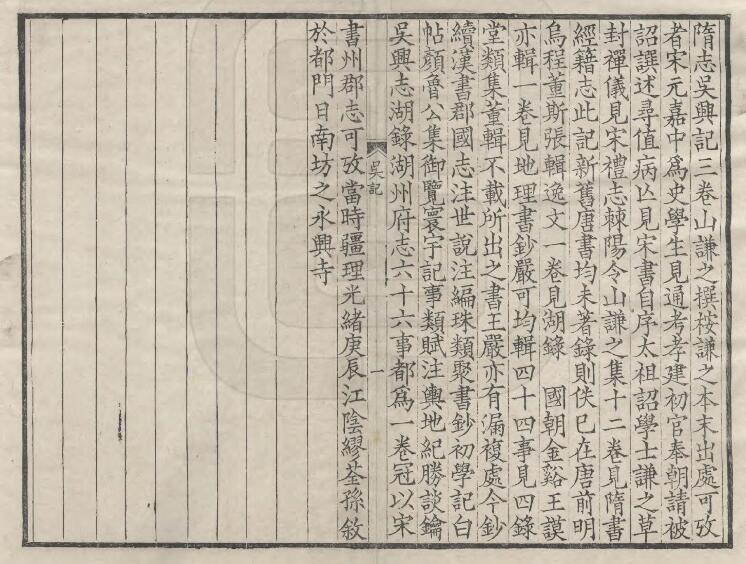 隋志吳興記三卷山謙之撰桉謙之本末出處可攷
者宋元嘉中爲史學生見通考孝建初官奉朝請被
詔譔述尋值病亾見宋書自序太祖詔學士謙之草
封禪儀見宋禮志棘陽令山謙之集十二卷見隋書
經籍志此記新舊唐書均未著錄則佚已在唐前明
烏程董斯張輯逸文一卷見湖錄　國朝金谿王謨
亦輯一卷見地理書鈔嚴可均輯四十四事見四錄
堂類集董輯不載所出之書王嚴亦有漏複處今鈔
續漢書郡國志注世說注編珠類聚書鈔初學記白
帖顏魯公集御覽寰宇記事類賦注輿地紀勝談鑰
吳興志湖錄湖州府志六十六事都爲一卷冠以宋
吳記
一
書州郡志可攷當時疆理光緒庚辰江陰繆荃孫敘
於都門日南坊之永興寺